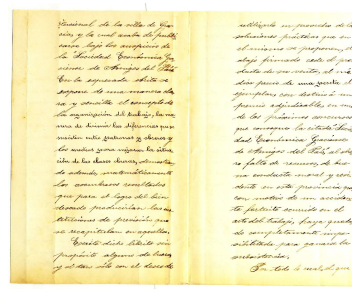 Nacional de la villa de Gra-
cia, y la cual acaba de publi-
carse bajo los auspicios de
la Sociedad Económica Gra-
ciense de Amigos del País.
En la expresada obrita se
expone de una manera cla-
ra y sencilla el concepto de
la organización del trabajo, la ma-
nera de dirimir las diferencias que se
susciten entre patronos y obreros y
los medios para mejorar la situa-
ción de las clases obreras, demostran-
do además, matemáticamente
los resultados
que para el logro del bien
deseado producirían las ins-
tituciones de previsión que
se recapitulan en aquella.
Escrito dicho folleto sin
propósito alguno de lucro
y al darlo sólo con el deseo de
en provecho de las
soluciones prácticas que en
el mismo se proponen, el
abajo firmado cede el pro-
ducto de su venta, al
ejemplares, con destino á un
premio adjudicable, en uno
de los próximos concursos
que celebre la citada Socie-
dad Económica Graciense
de Amigos del País, al obre-
ro falto de recursos, de bue-
na conducta moral y con
en esta provincia que
con motivo de un acciden-
te fortuito ocurrido en el
acto del trabajo, haya queda-
do completamente impo-
sibilitado para ganarse la
subsistencia.
Por todo lo cual, el que